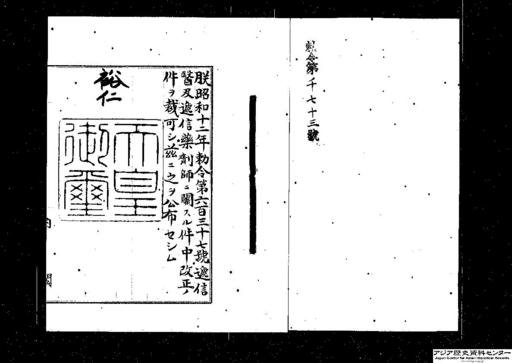 勅令第千七十三號
朕昭和十二年勅令第六百三十七號遞信
醫及遞信藥劑師ニ關スル件中改正ノ
件ヲ裁可シ玆ニ之ヲ公布セシム
裕仁
天皇
御璽
内閣
アジア歴史資料センター
Japan Center for Asian Historical Records